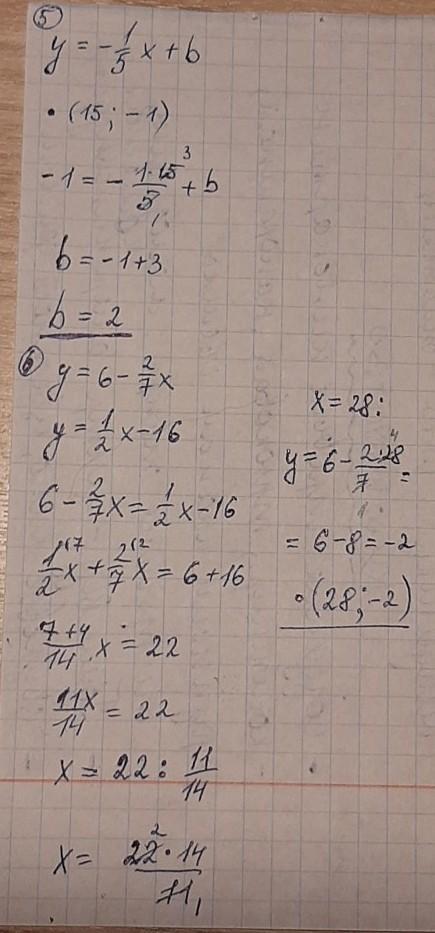 ⑤
y = -1/5 x + b
• (15; -1)
-1 = - 1·15 3/5 1 + b
b = -1+3
b = 2
⑥ y = 6 - 2/7 x
y = 1/2 x - 16
6 - 2/7 x = 1/2 x - 16
1(7/2 x + 2(2/7 x = 6 + 16
7+4/14 x = 22
11x/14 = 22
x = 22 : 11/14
x = 22 2 · 14/11 1
x = 28:
y = 6 - 2·28 4/7 1 =
= 6 - 8 = -2
• (28; -2)